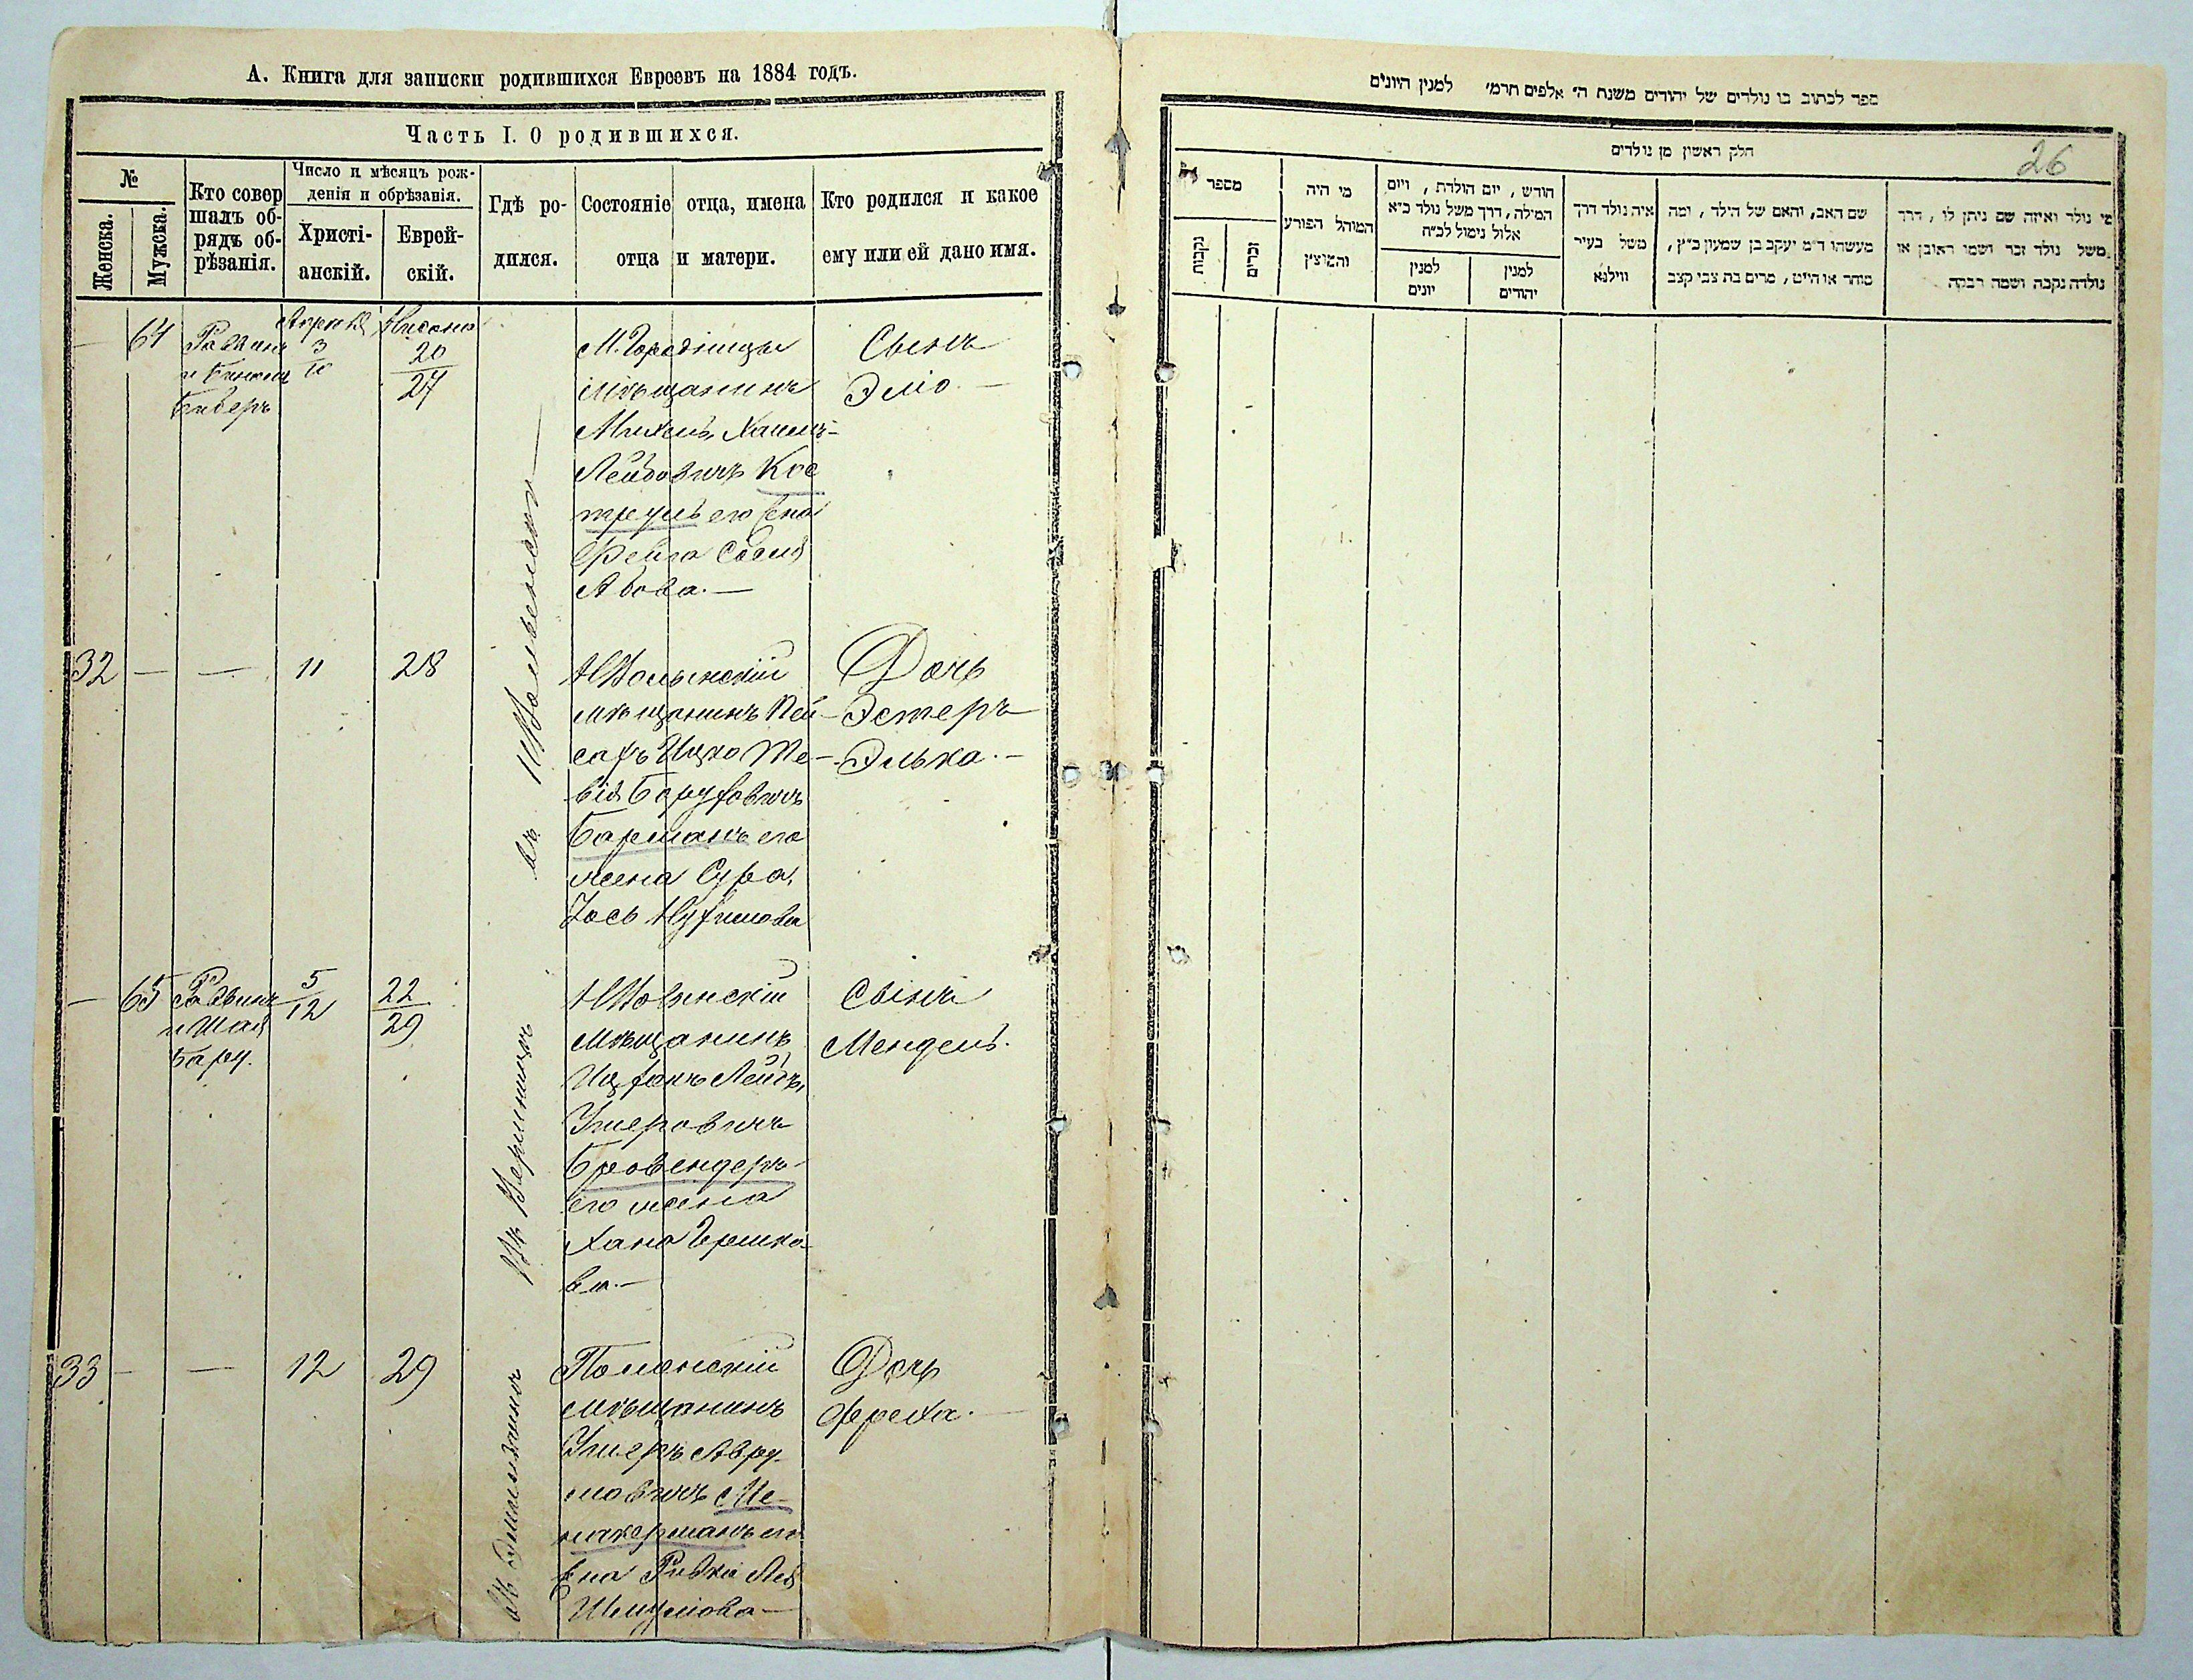 А. Книга для записки родившихся Евреевъ на 1884 годъ.
Часть I. О родившихся.
№
Женска.
Мужска.
Кто совер
шалъ об-
рядъ об-
рѣзанія.
Число и мѣсяцъ рож-
денія и обрѣзанія.
Христі-
анскій.
Еврей-
скій.
Гдѣ ро-
дился.
Состояніе отца, имена
отца и матери.
Кто родился и какое
ему или ей дано имя.
— 64
Раввинъ
Апрѣля
3
10
Нисана
20
27
М. Городницы
мѣщанинъ
Лейбовичъ Кос
его жена
Фейга
Абова.—
Сынъ
32 — — 11 28
НВолынскій
мѣщанинъ Пей-
сахъ Ицко Те-
вія Боруховичъ
Барманъ его
жена Сура,
Дочь
Эстеръ
Элька.—
— 65
Раввинъ
и Шая
5
12
22
29
НВолынскій
мѣщанинъ
Ицхокъ Лейбъ
Ушеровичъ
Бровендеръ
его жена
Хана Гершко-
ва.—
Сынъ
Мендель.
33 — — 12 29
Полонскій
мѣщанинъ
Ушеръ Авру-
мовичъ Ме-
его
жена Ривка Лея
Шмулова—
Дочь
Фрейда.—
ספר לכתוב בו נולדים של יהודים משנת ה' אלפים תרמ' למנין היונים
חלק ראשון מן נולדים
26
מספר
נקבות
זכרים
מי היה
המוהל הפורע
והמוצץ
חודש, יום הולדת, ויום
המילה, דרך משל נולד כ״א
אלול נימול לכ״ח
למנין
יונים
למנין
יהודים
איה נולד דרך
משל בעיר
ווילנא
שם האב, והאם של הילד, ומה
מעשהו ד״מ יעקב בן שמעון כ״ץ,
סוחר או חייט, מרים בת צבי קצב
מי נולד ואיזה שם ניתן לו, דרך
משל נולד זכר ושמו ראובן או
נולדה נקבה ושמה רבקה